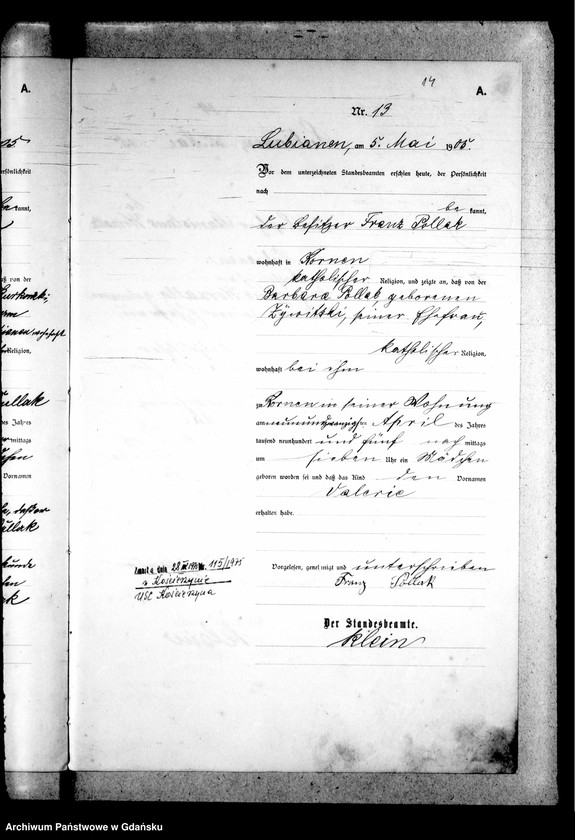 A.
14
A.
Nr. 13
Lubianen, am 5. Mai 1905.
Vor dem unterzeichneten Standesbeamten erschien heute, der Persönlichkeit
nach
be kannt,
der Besitzer Franz Pollak
wohnhaft in Kornen
katholischer Religion, und zeigte an, daß von der
Barbara Pollak, geborenen
seiner Ehefrau,
katholischer Religion,
wohnhaft bei ihm
zu Kornen in seiner Wohnung
am neunundzwanzigsten April des Jahres
tausend neunhundert und fünf nach mittags
um sieben Uhr ein Mädchen
geboren worden sei und daß das Kind den Vornamen
Valerie
erhalten habe.
Vorgelesen, genehmigt und unterschrieben
Franz Pollak
Der Standesbeamte.
Klein
28 Nr. 115/1975
z Kościerzynie
USC Kościerzyna
Persönlichkeit
kannt,
daß von der
wohnhaft
Religion,
Pollak
des Jahres
mittags
Vornamen
Pollak
Archiwum Państwowe w Gdańsku